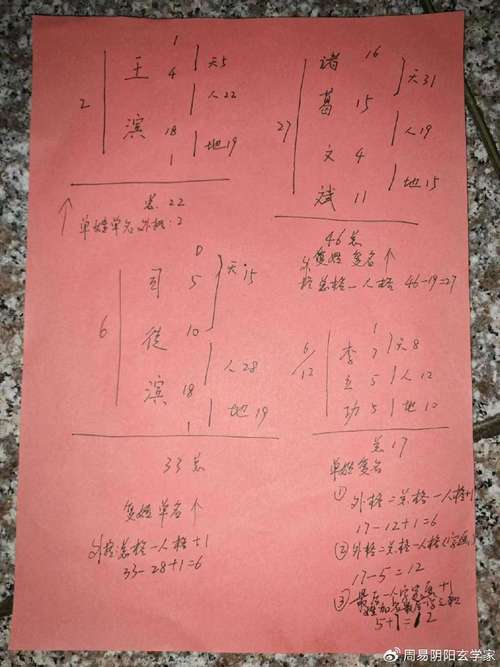 1
王 4 天5
2 人22
滨 18
1 地19
总 22
单姓单名外格:2
诸 16
天31
葛 15
27 人19
文 4
地15
斌 11
46总
复姓复名
外格总格-人格 46-19=27
0
司 5 天15
6 徒 10
人28
滨 18
1 地19
33总
复姓单名
外格总格-人格+1
33-28+1=6
1
6/12 李 7 天8
立 5 人12
功 5 地10
总17
单姓复名
① 外格=总格-人格+1
17-12+1=6
② 外格=总格-人格
17-5=12
③ 最后一字笔画+1
5+7=12
@周易阴阳玄学家